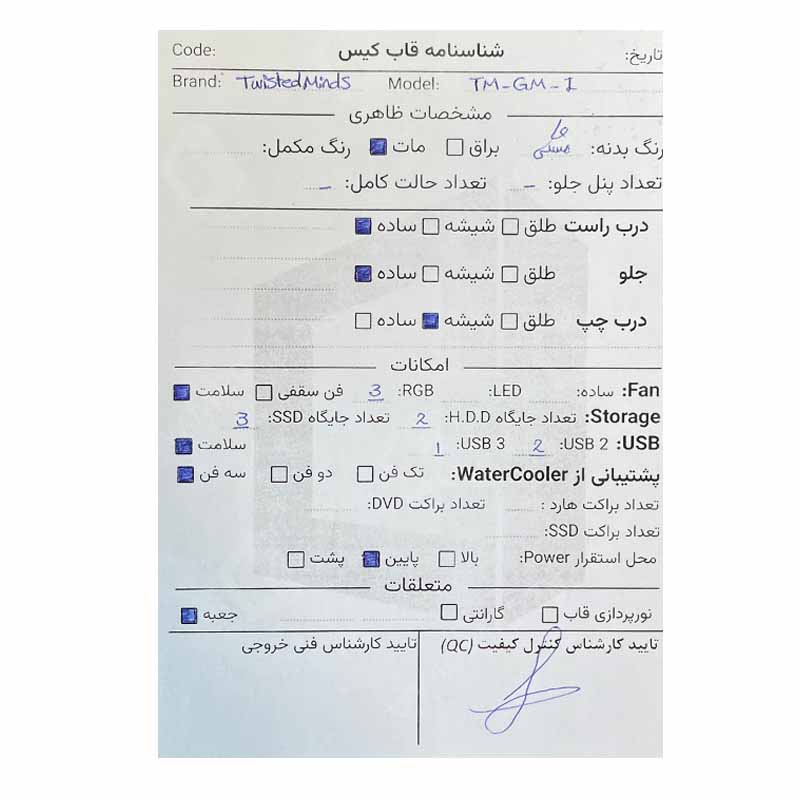 تاریخ: شناسنامه قاب کیس Code:
Brand: TwistedMinds Model: TM-GM-1
مشخصات ظاهری
رنگ بدنه: مشکی براق مات رنگ مکمل:
تعداد پنل جلو: - تعداد حالت کامل: -
درب راست طلق شیشه ساده
جلو طلق شیشه ساده
درب چپ طلق شیشه ساده
امکانات
Fan: ساده: LED: RGB: 3 فن سقفی سلامت
Storage: تعداد جایگاه H.D.D: 2 تعداد جایگاه SSD: 3
USB: USB 2: 2 USB 3: 1 سلامت
پشتیبانی از WaterCooler: تک فن دو فن سه فن
تعداد براکت هارد : تعداد براکت DVD:
تعداد براکت SSD:
محل استقرار Power: بالا پایین پشت
متعلقات
نورپردازی قاب گارانتی جعبه
تایید کارشناس کنترل کیفیت (QC) تایید کارشناس فنی خروجی